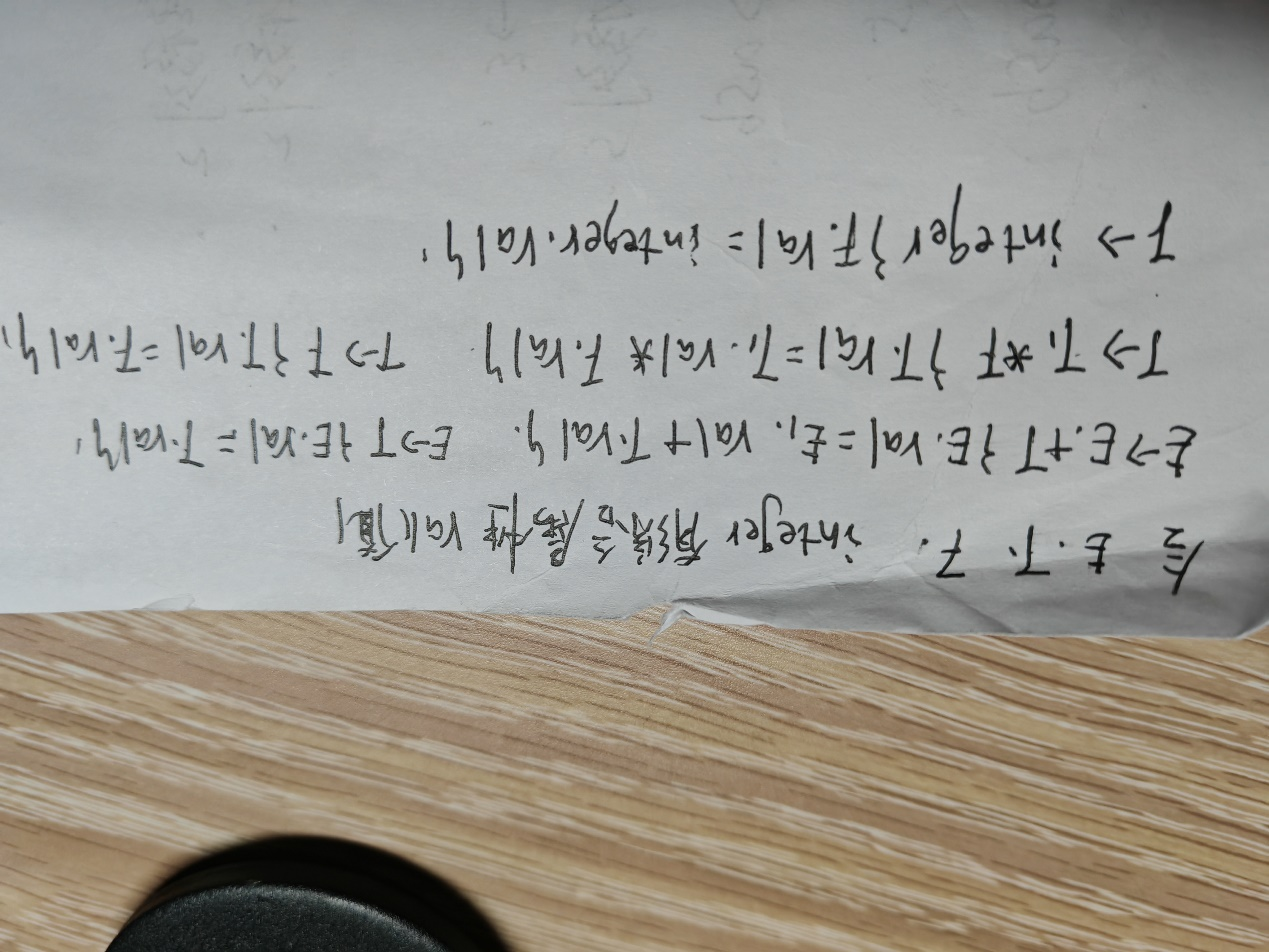 令 E. T. F. integer 有综合属性 val(值)
E→E₁+T {E.val=E₁.val+T.val}. E→T {E.val=T.val},
T→T₁*F {T.val=T₁.val*F.val} T→F {T.val=F.val},
F→integer {F.val=integer.val},